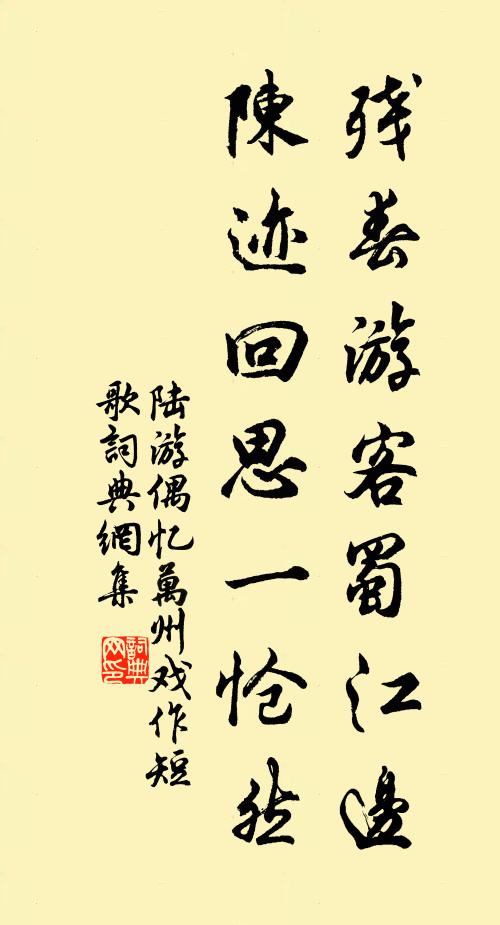 残春游客蜀江邊
陳迹回思一怆然
陆游偶忆萬州戏作短
歌詞典網集
詞典
网印